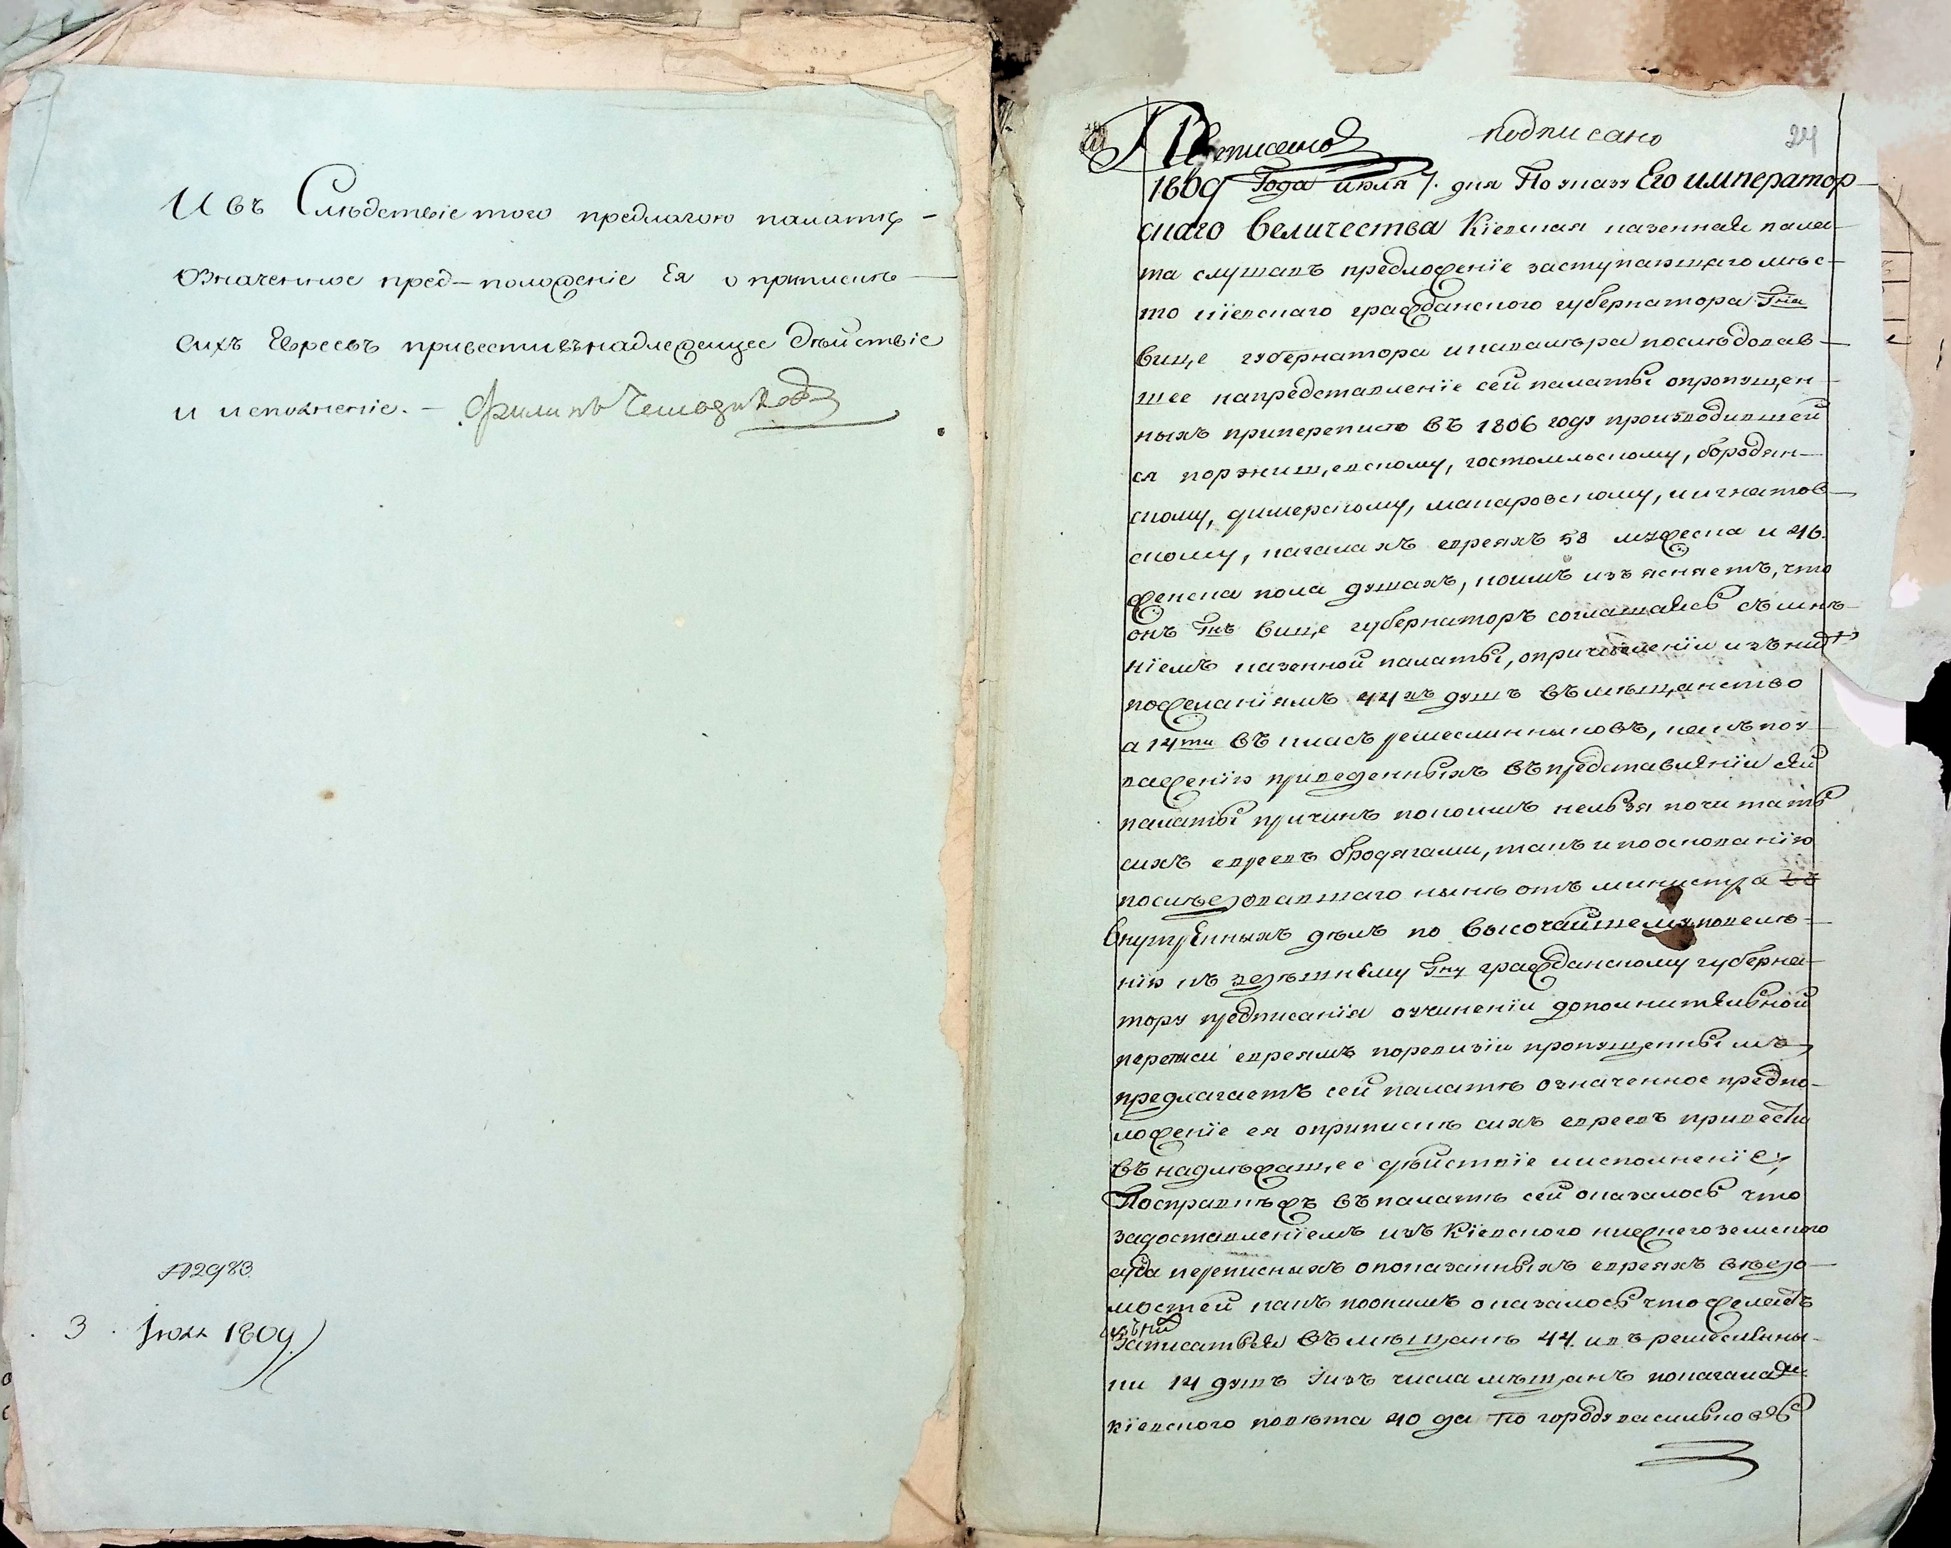 И въ Следствіе того предлагаю палатѣ
означенное пред-положеніе Ея о припискѣ
сихъ Евреевъ привести въ надлежащее дѣйствіе
и исполненіе. —
№ 2983
3 Июля 1809
подписано 24
1809 Года июля 7. дня По указу Его император
скаго величества Кіевская казенная пала
та слушавъ предложеніе заступающаго мѣс
то кіевскаго гражданского губернатора Гна
вице губернатора и кавалера последовав
шее напредставленіе сей палаты опропущен
ныхъ приперепись въ 1806 году производившей
ся поржищевскому, гостомльскому, бородян
скому, димерскому, макаровскому, и игнатов
скому, кагалахъ евреяхъ 58 мужеска и 46
женска пола душахъ, коимъ изъясняетъ, что
онъ Гнъ вице губернаторъ соглашаясь съ мнѣ
ніемъ казенной палаты, опричисленіи изъ них
пожеланіямъ 44хъ душъ въ мѣщанство
а 14ти въ класъ ремеслинниковъ, какъ поу
важенію приведенныхъ въ представленіи сей
палаты причинъ покоимъ нельзя почитать
сихъ евреевъ бродягами, такъ и по основанію
последовавшаго нынѣ отъ министра
внутренныхъ дѣлъ по высочайшему повелѣ
нію къ здѣшнему Гну гражданскому губерна
тору предписанія о учиненіи дополнительной
переписи евреямъ поревизіи пропущеннымъ,
предлагаетъ сей палатѣ означенное предпо
ложеніе ея оприпискѣ сихъ евреевъ привести
въ надлежащее дѣйствіе и исполненіе,
Посправкѣ жъ въ палатѣ сей оказалось что
задоставленіемъ изъ Кіевского нижнего земского
суда переписныхъ опоказанныхъ евреяхъ вѣдо
мостей какъ поонимъ оказалось что желаютъ
изъ них
записаться въ мѣщанѣ 44. и въ ремеслинни
ки 14 душъ изъ числа мѣщанъ покагалам
кіевского повѣта 40 да по городу василькову